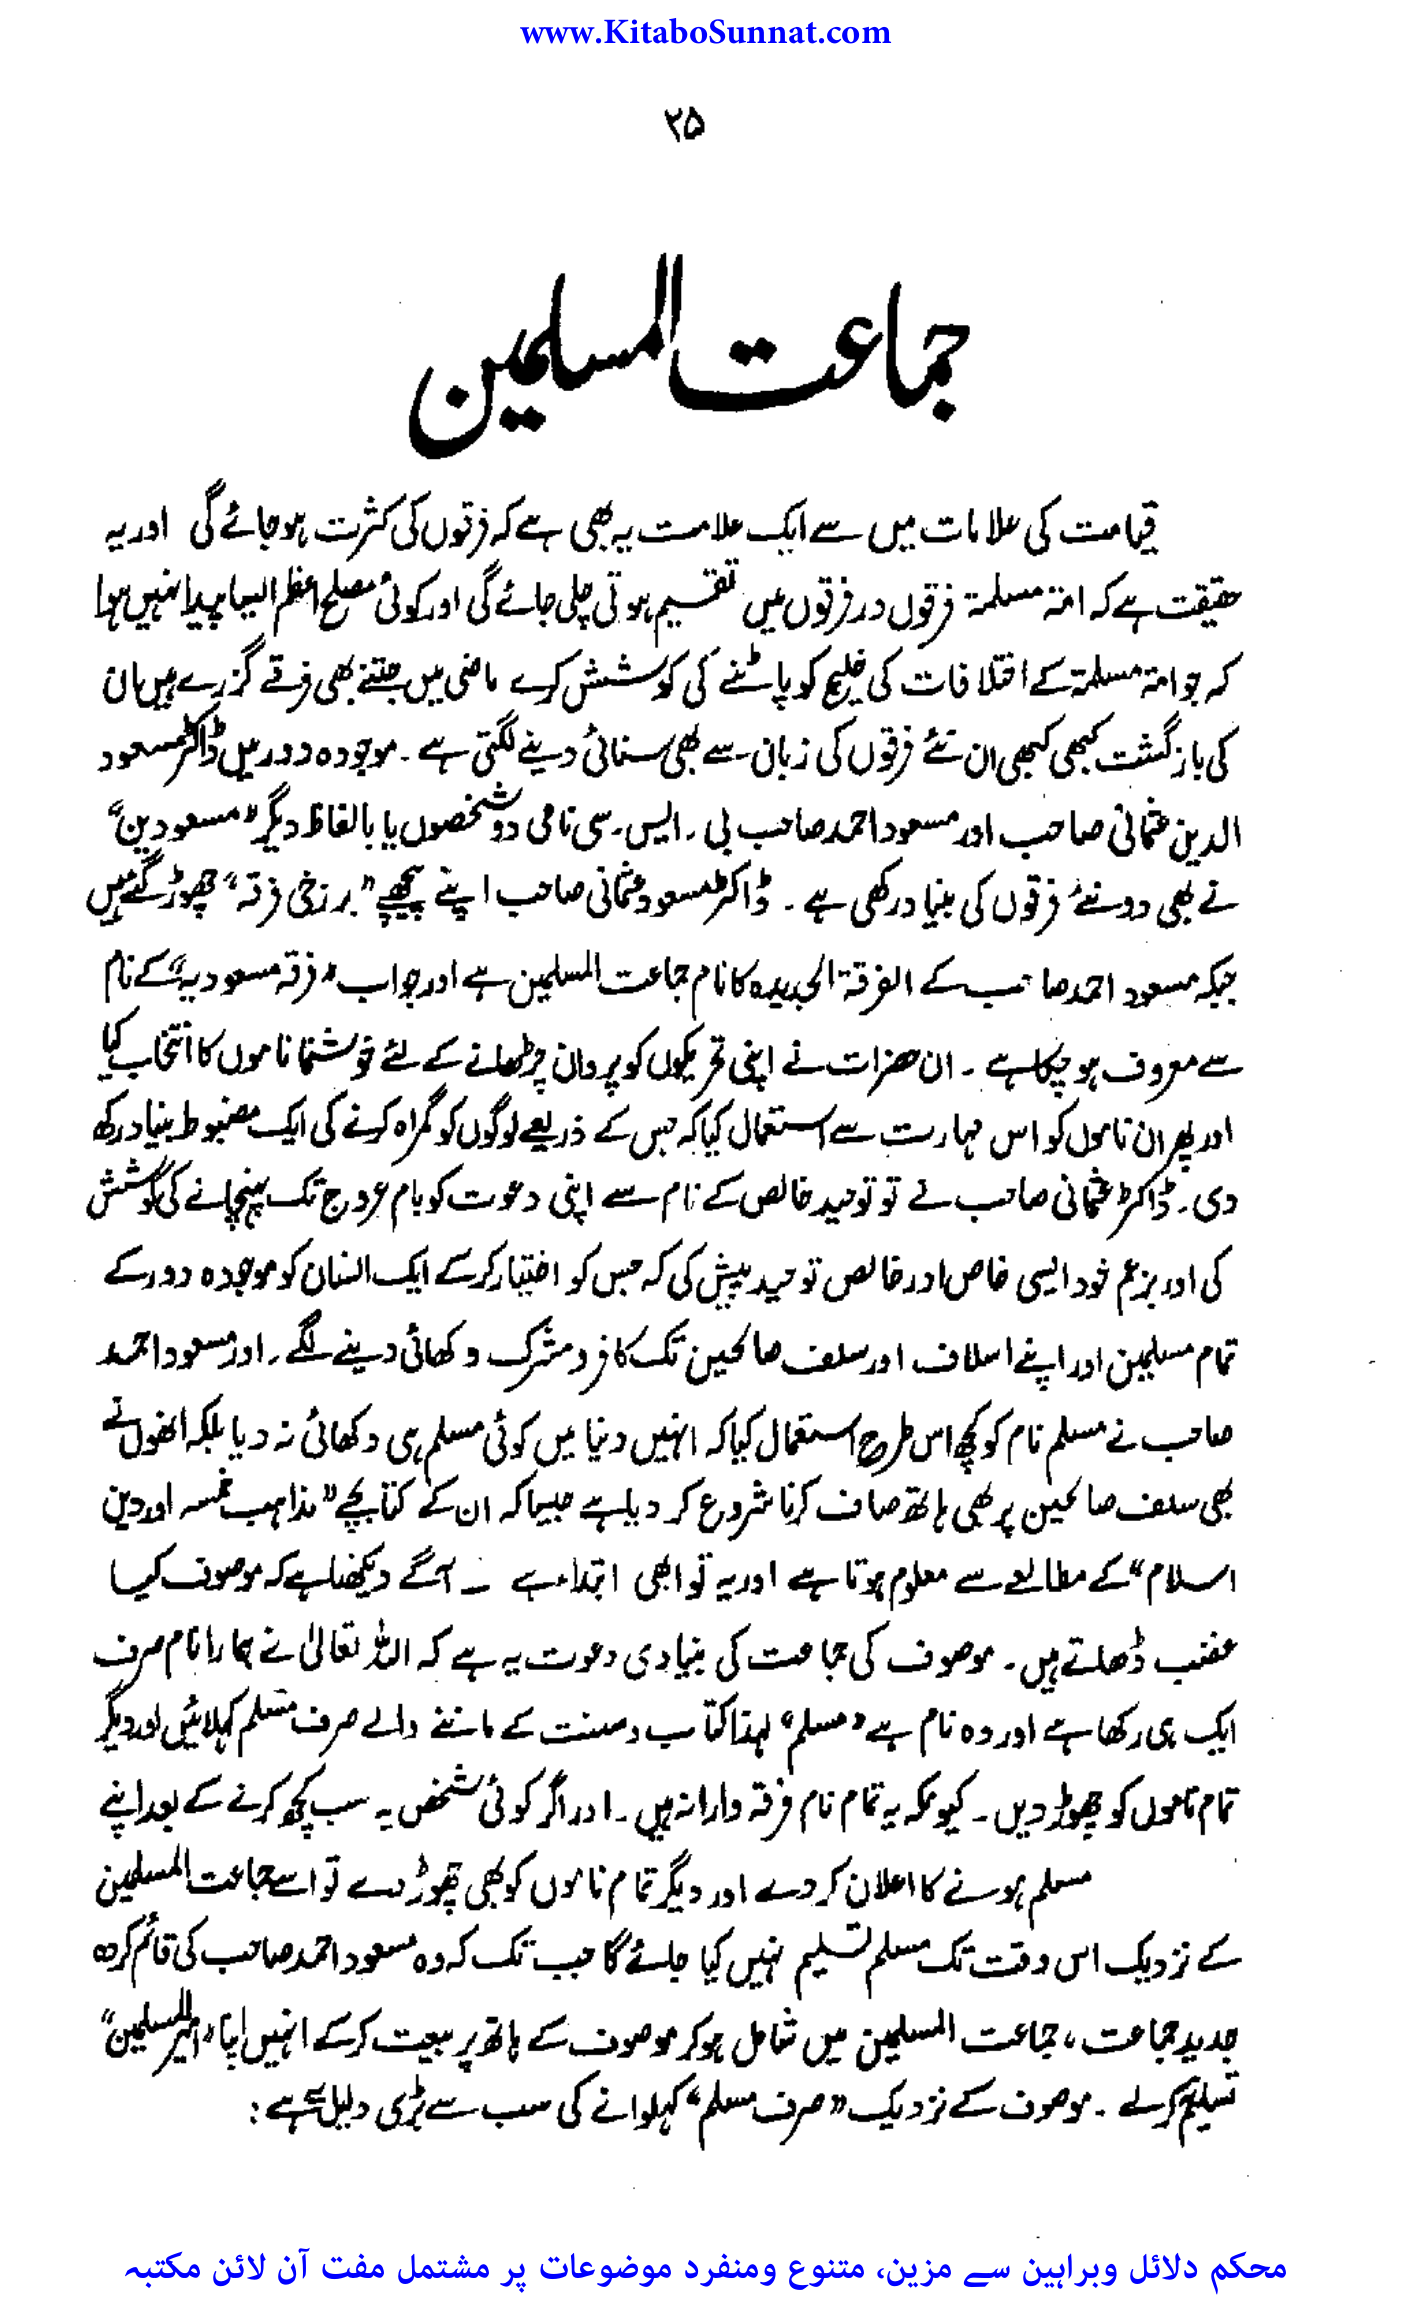 www.KitaboSunnat.com
۲۵
جماعت المسلمین
قیامت کی علامات میں سے ایک علامت یہ بھی ہے کہ فرقوں کی کثرت ہو جائے گی اور یہ
حقیقت ہے کہ امۃ مسلمۃ فرقوں در فرقوں میں تقسیم ہوتی چلی جائے گی اور کوئی مصلح اعظم ایسا پیدا نہیں ہوا
کہ جو امۃ مسلمۃ کے اختلافات کی خلیج کو پاٹنے کی کوشش کرے ماضی میں جتنے بھی فرقے گزرے ہیں ان
کی بازگشت کبھی کبھی ان نئے فرقوں کی زبان سے بھی سنائی دینے لگتی ہے ۔ موجودہ دور میں ڈاکٹر مسعود
الدین عثمانی صاحب اور مسعود احمد صاحب بی ۔ ایس ۔ سی نامی دو شخصوں یا بالفاظ دیگر "مسعودین"
نے بھی دو نئے فرقوں کی بنیاد رکھی ہے ۔ ڈاکٹر مسعود عثمانی صاحب اپنے پیچھے "برزخی فرقہ" چھوڑ گئے ہیں
جبکہ مسعود احمد صاحب کے الفرقۃ الجدیدہ کا نام جماعت المسلمین ہے اور جو اب "فرقہ مسعودیہ" کے نام
سے معروف ہو چکا ہے ۔ ان حضرات نے اپنی تحریکوں کو پروان چڑھانے کے لئے خوشنما ناموں کا انتخاب کیا
اور پھر ان ناموں کو اس مہارت سے استعمال کیا کہ جس کے ذریعے لوگوں کو گمراہ کرنے کی ایک مضبوط بنیاد رکھ
دی ۔ ڈاکٹر عثمانی صاحب نے تو توحید خالص کے نام سے اپنی دعوت کو بام عروج تک پہنچانے کی کوشش
کی اور بزعم خود ایسی خاص اور خالص توحید پیش کی کہ جس کو اختیار کرکے ایک انسان کو موجودہ دور کے
تمام مسلمین اور اپنے اسلاف اور سلف صالحین تک کافر و مشرک دکھائی دینے لگے ۔ اور مسعود احمد
صاحب نے مسلم نام کو کچھ اس طرح استعمال کیا کہ انہیں دنیا میں کوئی مسلم ہی دکھائی نہ دیا بلکہ انھوں نے
بھی سلف صالحین پر بھی ہاتھ صاف کرنا شروع کر دیا ہے جیسا کہ ان کے کتابچے "مذاہب خمسہ اور دین
اسلام" کے مطالعے سے معلوم ہوتا ہے اور یہ تو ابھی ابتداء ہے ۔ آگے دیکھنا ہے کہ موصوف کیا
غضب ڈھاتے ہیں ۔ موصوف کی جماعت کی بنیادی دعوت یہ ہے کہ اللہ تعالیٰ نے ہمارا نام صرف
ایک ہی رکھا ہے اور وہ نام ہے "مسلم" لہذا کتاب و سنت کے ماننے والے صرف مسلم کہلائیں اور دیگر
تمام ناموں کو چھوڑ دیں ۔ کیونکہ یہ تمام نام فرقہ وارانہ ہیں ۔ اور اگر کوئی شخص یہ سب کچھ کرنے کے بعد اپنے
مسلم ہونے کا اعلان کر دے اور دیگر تمام ناموں کو بھی چھوڑ دے تو اسے جماعت المسلمین
کے نزدیک اس وقت تک مسلم تسلیم نہیں کیا جائے گا جب تک کہ وہ مسعود احمد صاحب کی قائم کردہ
جدید جماعت ، جماعت المسلمین میں شامل ہو کر موصوف کے ہاتھ پر بیعت کرکے انہیں اپنا "امیر المسلمین"
تسلیم کرلے ۔ موصوف کے نزدیک "صرف مسلم" کہلوانے کی سب سے بڑی دلیل یہ ہے :
محکم دلائل وبراہین سے مزین، متنوع ومنفرد موضوعات پر مشتمل مفت آن لائن مکتبہ